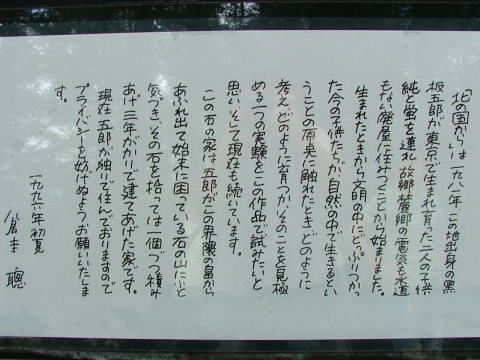 「北の国から」は一九八一年、この地出身の黒
板五郎が、東京で生まれ育った二人の子供
純と蛍を連れ、故郷麓郷の電気も水道
もない廃屋に住みつくことから始まりました。
生まれたときから文明の中にどっぷりつかっ
た今の子供たちが、自然の中で生きるとい
うことの原点に触れたとき、どのように
考え、どのように育つか、そのことを見極
める一つの実験をこの作品で試みたいと
思い、そして現在も続いています。
この石の家は五郎がこの界隈の畠から
あふれ出て始末に困っている石の山にふと
気づき、その石を拾っては一個づつ積み
あげ三年がかりで建てあげた家です。
現在五郎が独りで住んでおりますので
プライバシーを妨げぬようお願いいたしま
す。
一九九六年初夏
倉本 聰